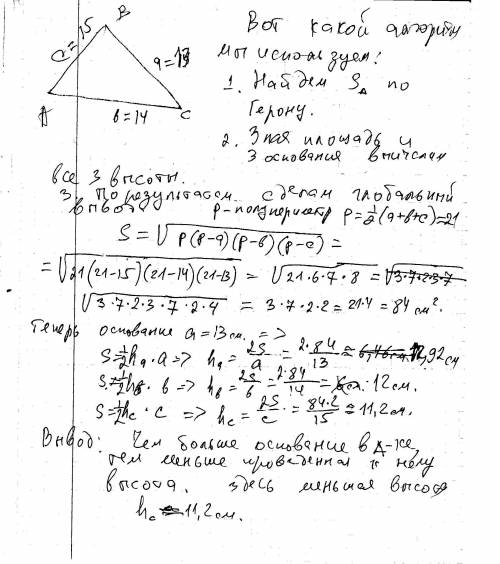 B
Вот какой алгоритм
c=15
a=13
мы используем:
1. Найдем S△ по
Герону.
A
b=14
C
2. Зная площадь и
3 основания вычислим
все 3 высоты.
3. По результатам сделаем глобальный
вывод.
p-полупериметр p=½(a+b+c)=21
S = √p(p-a)(p-b)(p-c) =
= √21(21-15)(21-14)(21-13) = √21·6·7·8 = √3·7·2·3·7
√3·7·2·3·7·2·4 = 3·7·2·2=21·4=84 см².
Теперь основание a=13 см. =>
S=½hₐ·a => hₐ = 2S/a = 2·84/13 ≈ 12,92 см
S=½h_b·b => h_b = 2S/b = 2·84/14 = 12 см.
S=½h_c·c => h_c = 2S/c = 84·2/15 = 11,2 см.
Вывод: Чем больше основание в △-ке,
тем меньше проведенная к нему
высота. Здесь меньшая высота
h_c = 11,2 см.